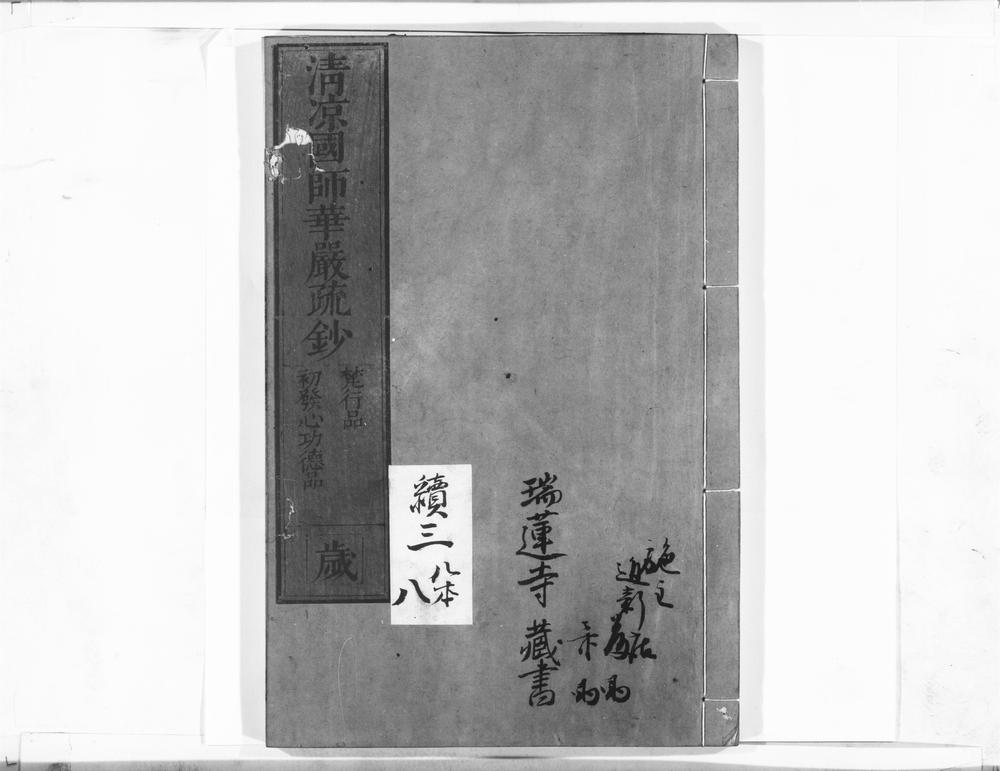 施主
瑞蓮寺 藏書
續三
八本
八
清凉國師華嚴疏鈔
梵行品
初發心功德品
歲